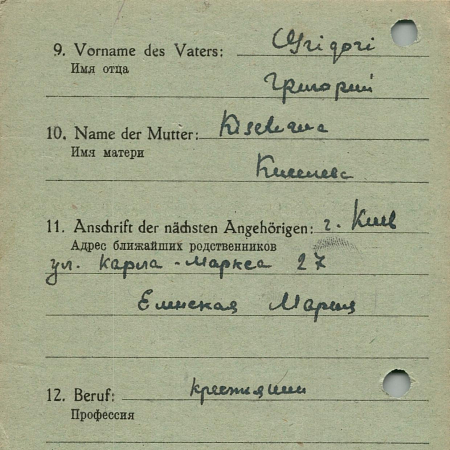 9. Vorname des Vaters: Grigori
Имя отца
Григорий
10. Name der Mutter:
Имя матери
11. Anschrift der nächsten Angehörigen: г. Киев
Адрес ближайших родственников
ул. Карла-Маркса 27
Елинская Мария
12. Beruf: крестьянин
Профессия